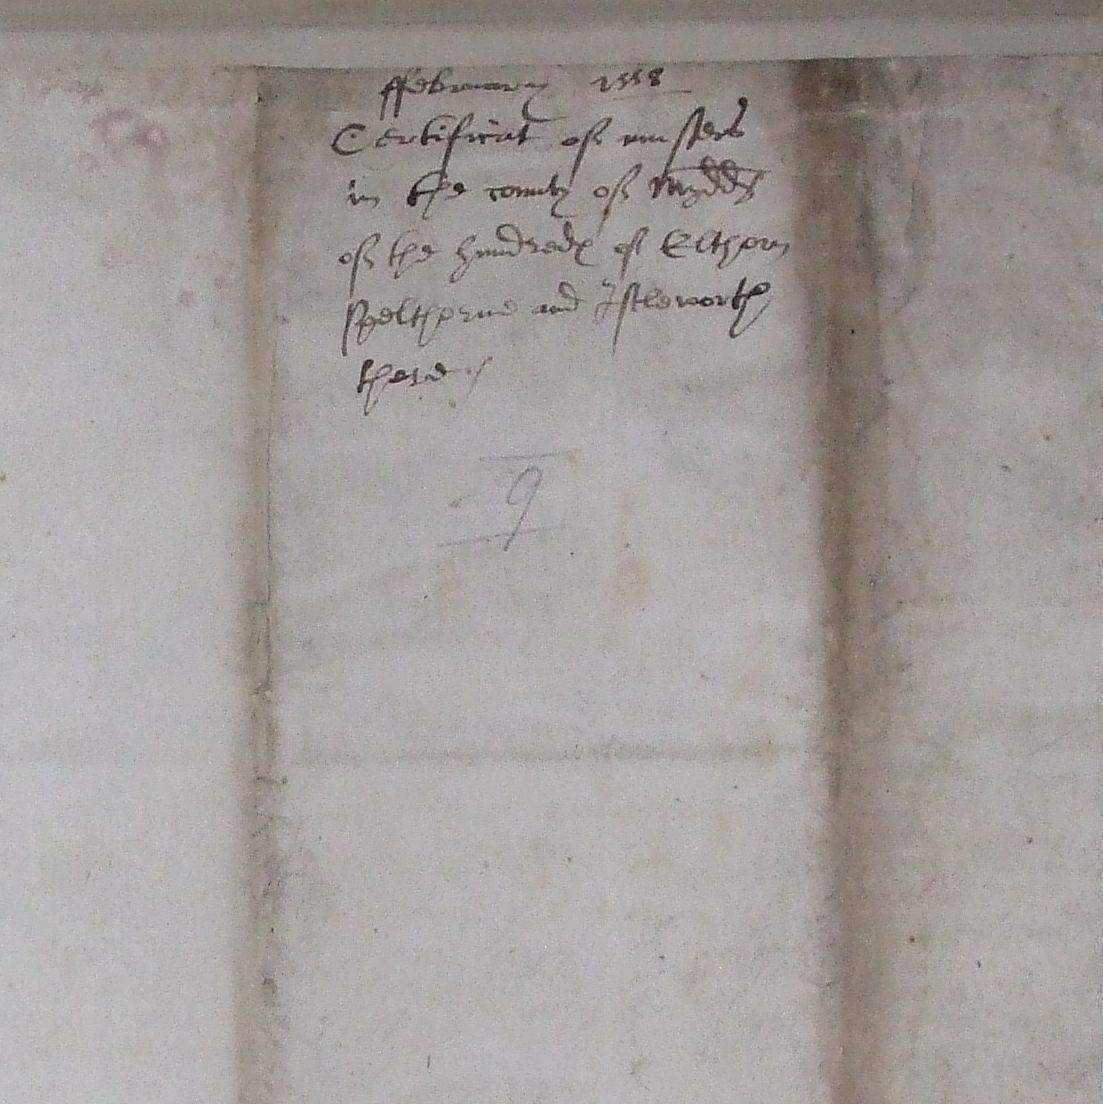 ffebruary 1558
Certificat of musters
in the county of Mydds
of the hundredes of Elthorn
Spelthorne and Istleworth
there
9